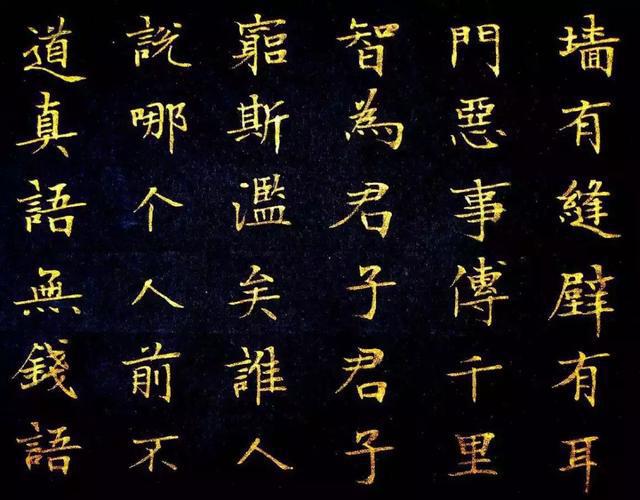 墙有縫壁有耳
門惡事傳千里
智為君子君子
窮斯濫矣誰人
說哪个人前不
道真語無錢語